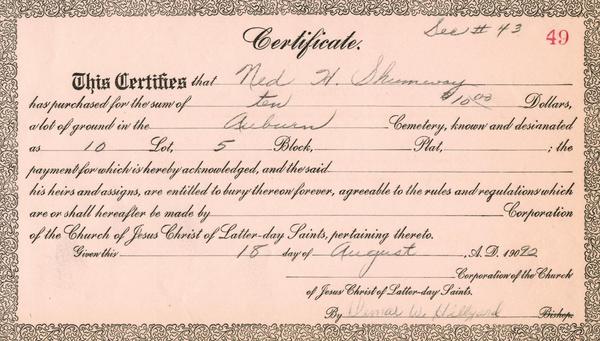 See # 43
49
Certificate.
This Certifies that Ned H. Shumway
has purchased for the sum of ten $10.00 Dollars,
a lot of ground in the Auburn Cemetery, known and designated
as 10 Lot, 5 Block, Plat, ; the
payment for which is hereby acknowledged, and the said
his heirs and assigns, are entitled to bury thereon forever, agreeable to the rules and regulations which
are or shall hereafter be made by Corporation
of the Church of Jesus Christ of Latter-day Saints, pertaining thereto.
Given this 18 day of August , A. D. 190
Corporation of the Church
of Jesus Christ of Latter-day Saints.
By W. Hillyard Bishop.